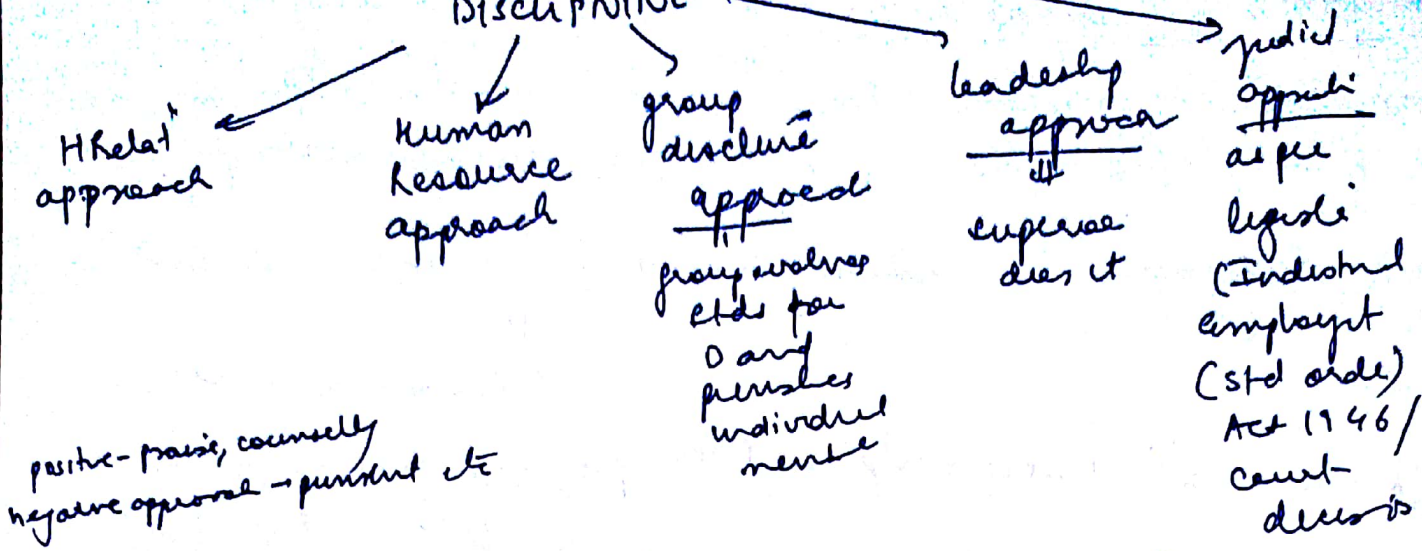 DISCIPNINE
HRelatn
approach
Human
Resource
approach
group
approed
group evolves
stds for
D and
punishes
individul
membe
leadeship
approca
supervse
does it
judicl
as per
legisl
(Industrial
employmt
(std orde)
Act 1946/
court
decisis
positve - praise, counselly
negative approach → punisht etc